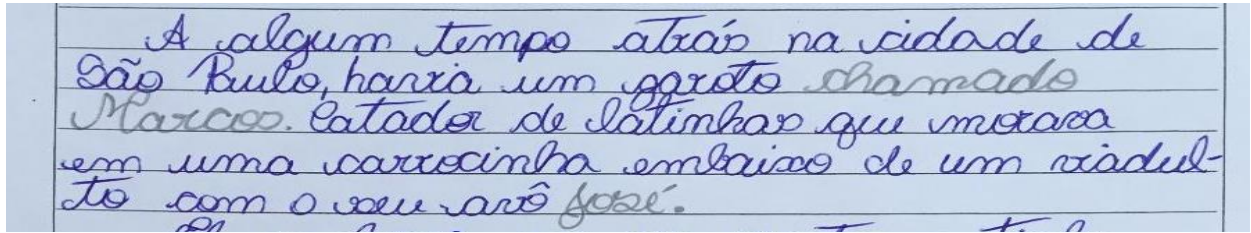 A algum tempo atrás na cidade de
São Paulo, havia um garoto chamado
Marcos. Catador de latinhas que morava
em uma carrocinha embaixo de um viadul-
to com o seu avô José.